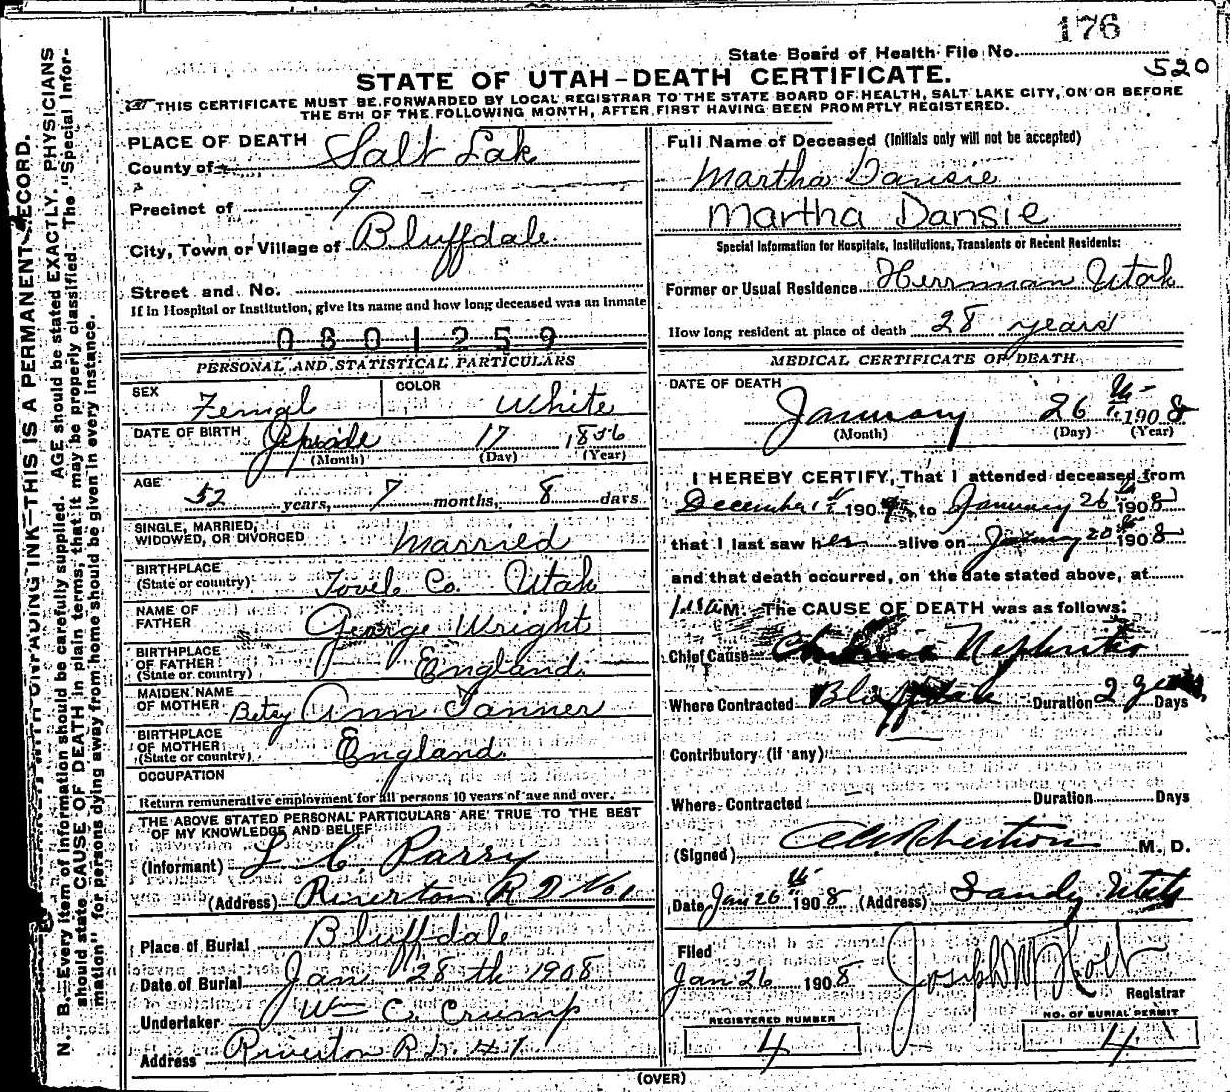 176
State Board of Health File No.
520
STATE OF UTAH–DEATH CERTIFICATE.
THIS CERTIFICATE MUST BE FORWARDED BY LOCAL REGISTRAR TO THE STATE BOARD OF HEALTH, SALT LAKE CITY, ON OR BEFORE
THE 5TH OF THE FOLLOWING MONTH, AFTER FIRST HAVING BEEN PROMPTLY REGISTERED.
N. B.—Every item of information should be carefully supplied. AGE should be stated EXACTLY. PHYSICIANS
should state CAUSE OF DEATH in plain terms, that it may be properly classified. The "Special Infor-
mation" for persons dying away from home should be given in every instance.
UNFADING INK—THIS IS A PERMANENT RECORD.
PLACE OF DEATH
County of Salt Lak
Precinct of 9
City, Town or Village of Bluffdale
Street and No.
If in Hospital or Institution, give its name and how long deceased was an Inmate
0801259
PERSONAL AND STATISTICAL PARTICULARS
SEX Femal
COLOR White
DATE OF BIRTH 17
(Month) (Day) (Year)
AGE 52 years, 7 months, 8 days
SINGLE, MARRIED,
WIDOWED, OR DIVORCED Married
BIRTHPLACE
(State or country) Co. Utah
NAME OF
FATHER George Wright
BIRTHPLACE
OF FATHER
(State or country) England
MAIDEN NAME
OF MOTHER Betsy Ann Tanner
BIRTHPLACE
OF MOTHER
(State or country) England
OCCUPATION
Return remunerative employment for all persons 10 years of age and over.
THE ABOVE STATED PERSONAL PARTICULARS ARE TRUE TO THE BEST
OF MY KNOWLEDGE AND BELIEF
(Informant) L. C. Parry
(Address) Riverton R D No 1
Place of Burial Bluffdale
Date of Burial Jan 28th 1908
Undertaker Wm C. Crump
Address Riverton R.D.
Full Name of Deceased (Initials only will not be accepted)
Martha Dansie
Martha Dansie
Special Information for Hospitals, Institutions, Transients or Recent Residents:
Former or Usual Residence Herriman Utah
How long resident at place of death 28 years
MEDICAL CERTIFICATE OF DEATH
DATE OF DEATH
January 26th 1908
(Month) (Day) (Year)
I HEREBY CERTIFY, That I attended deceased from
December 190 to January 26th 1908
that I last saw her alive on January 20th 1908
and that death occurred, on the date stated above, at
M. The CAUSE OF DEATH was as follows:
Chief Cause Nephritis
Where Contracted Bluffdale Duration 2 Days
Contributory (if any)
Where Contracted Duration Days
(Signed) Robertson M. D.
Date Jan 26th 1908 (Address) Sandy Utah
Filed
Jan 26 1908 Joseph M Holt
Registrar
REGISTERED NUMBER
4
NO. OF BURIAL PERMIT
4
(OVER)